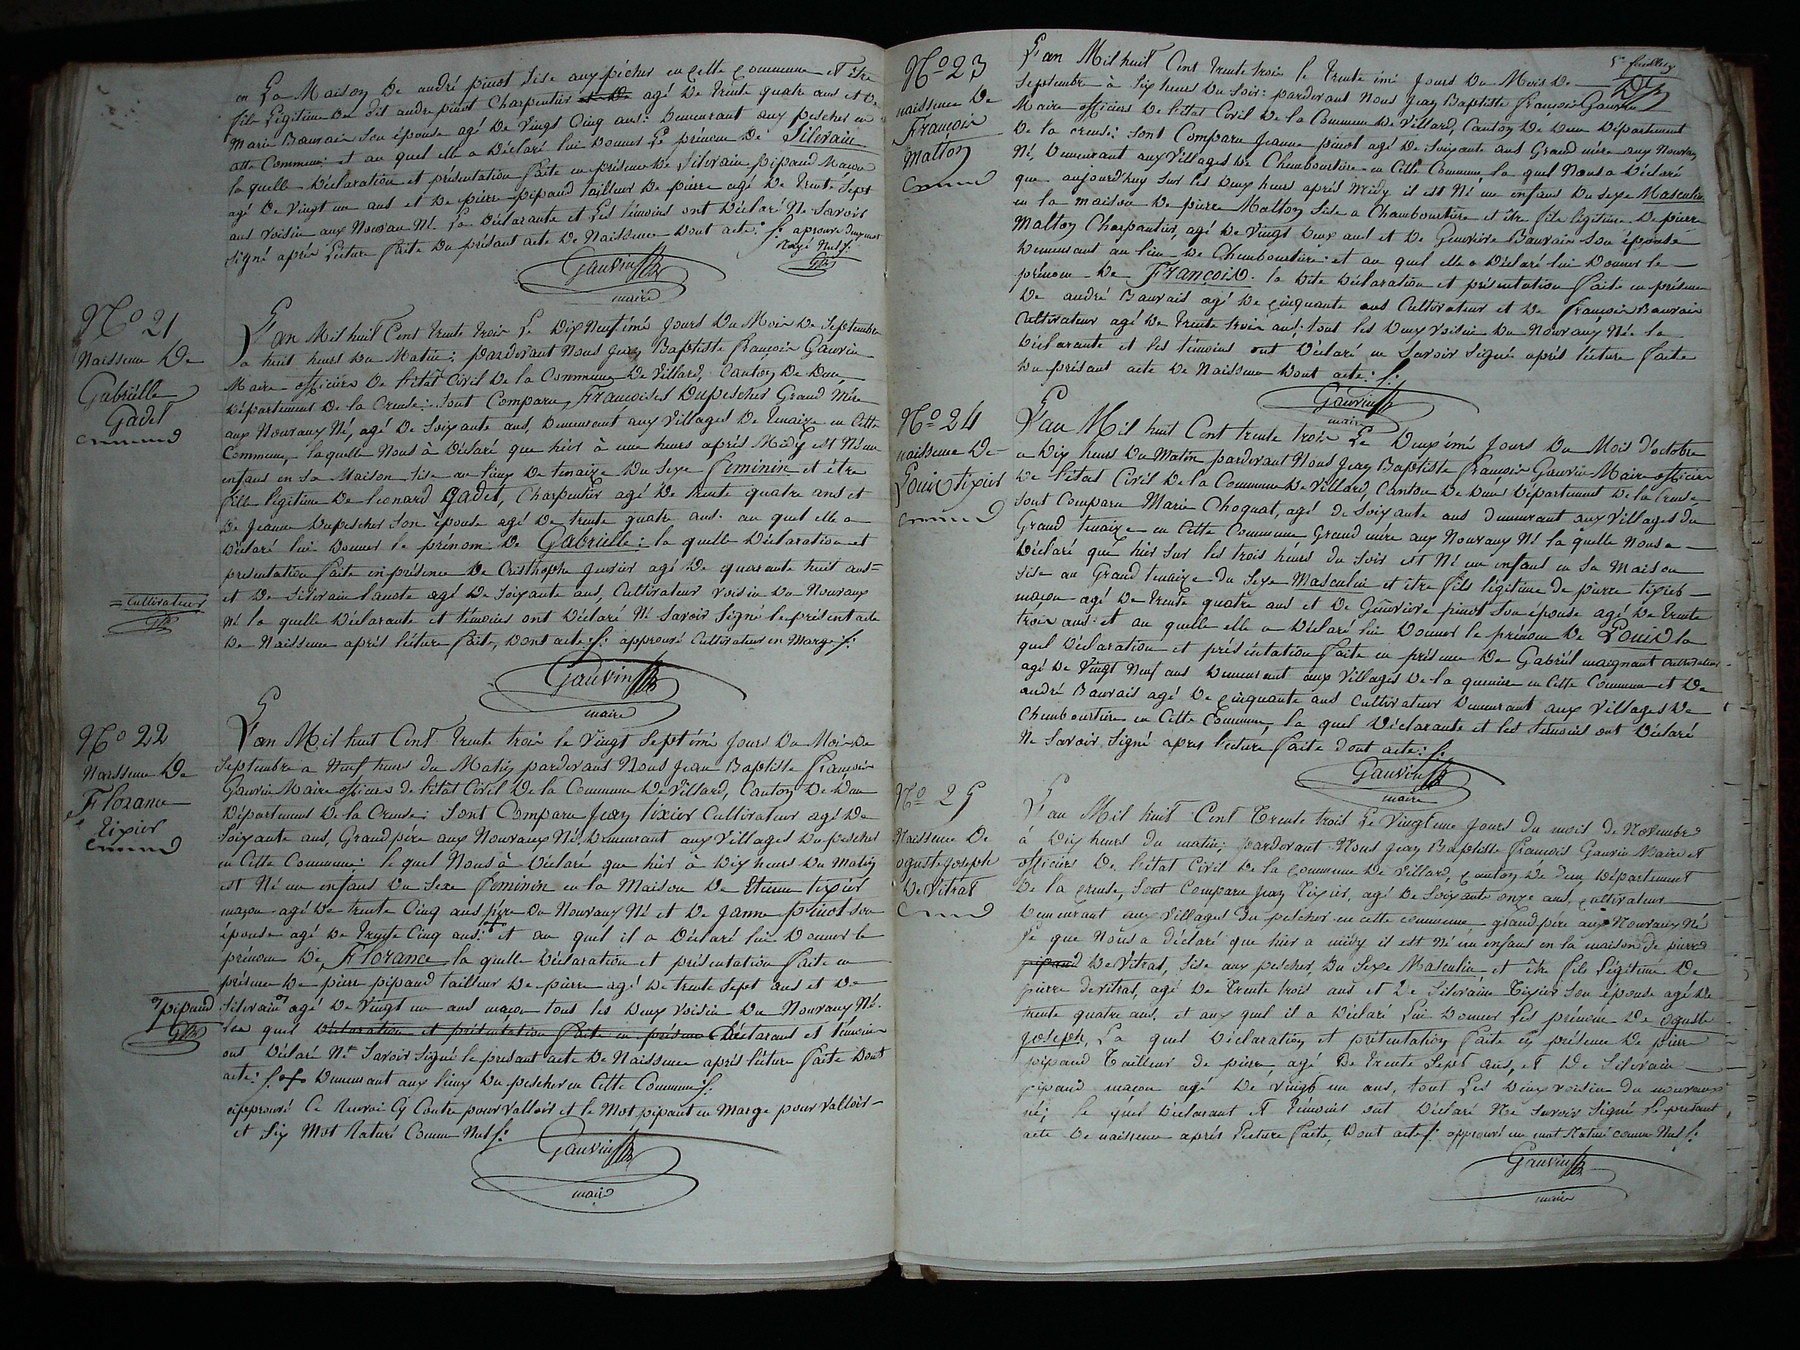 en La Maison De andré pinot sise aux pecher en cette Commune et être
fils Légitime Du dit andré pinot Charpentier et De agé De trente quatre ans et De
Marie Bauvais Son épouse agé De Vingt Cinq ans: Demeurant aux pescher en
cette Commune: et au quel elle a Déclaré lui Donner Le prénom De Silvrain
la quelle Déclaration et présentation faite en présence De Silvrain pipaud Maçon
agé De Vingt un ans et De pierre pipaud tailleur De pierre agé De trente Sept
ans voisin aux Nouvau Né. La Déclarante et Les témoins ont Déclaré Ne Savoir
Signé après Lecture faite Du présant acte De Naissance Dont acte: f: aprouvé deux mot
rayé Nul f.
Gauvin
maire
N° 21
Naissance De
Gabriëlle
Gadet
L'an Mil huit Cent trente trois Le Dix Neufième Jours Du Mois De Septembre
a huit heures Du Matin; pardevant Nous Jean Baptiste françois Gauvin
Maire officiers De l'état Civil De la Commune De Villard, Canton De Dun
Département De la Creuse: Sont Comparu Françoises Dupescher Grand Mère
aux Nouvaux Né, agé De Soixante ans, Demeurant aux Villages De tenaize en Cette
Commune, laquelle Nous à Déclaré que hier à une heurs après Médy est Né un
enfans en Sa Maison Sise au lieux De tenaize Du Sexe féminin et être
fille légitime De leonard Gadet, Charpentier agé De trente quatre ans et
De Jeanne Dupescher Son épouse agé De trente quatre ans. au quel elle a
Déclaré lui Donner le prénom De Gabriëlle: la quelle Déclaration et
présentation faite en présence De Cristhophe Juvier agé De quarante huit ans =
et De Silvrain lamote agé De Soixante ans, Cultivateur voisin Du Nouvaux
Né la quelle Déclarante et témoins ont Déclaré Né Savoir Signé le présent acte
De Naissance après lecture fait, Dont acte f: approuvé Cultivateur en Marge f:
= Cultivateur
Gauvin
maire
N° 22
Naissance De
Florance
tixier
L'an Mil huit Cent trente trois le Vingt Septième Jours Du Mois De
Septembre a Neuf heurs du Matin pardevant Nous Jean Baptiste françois
Gauvin Maire officiers de l'état Civil De la Commune De Villard, Canton De Dun
Département De la Creuse: Sont Comparu Jean tixier Cultivateur agé De
Soixante ans, Grand père aux Nouvaux Né Demeurant aux Villages Du pescher
en Cette Commune: le quel Nous à Déclaré que hier à Dix heurs Du Matin
est Né un enfans Du Sexe féminin en la Maison De Etienne tixier
maçon agé De trente Cinq ans père Du Nouvaux Né et De Janne pinot Son
épouse agé De trente Cinq ans: et au quel il a Déclaré lui Donner le
prénom De, Florance la quelle Déclaration et présentation faite en
présence De pierre pipaud tailleur De pierre agé De trente Sept ans et De
Silvrain agé De Vingt un ans maçon tous les Deux Voisin Du Nouvaux Né.
les quel Déclaration et présentation faite en présence Déclarant et temoin
ont Déclaré Ne Savoir Signé le présant acte De Naissance après lecture faite Dont
acte: f. Demeurant aux lieux Du pescher en Cette Commune f:
approuvé Ce Renvoi Cy Contre pour Valloir et le Mot pipaut en Marge pour Valloir-
et Six Mot Raturé Comme Nul f:
pipaud
Gauvin
maire
N° 23
naissance De
François
Malton
5e feuillet
L'an Mil huit Cent trente trois le trente ième Jours Du Mois De
Septembre à Six heures Du Soir: pardevant Nous Jean Baptiste françois Gauvin
Maire officiers De l'état Civil De la Commune De Villard, Canton De Dun Département
De la creuse: Sont Comparu Jeanne pinot agé De Soixante ans Grand mère aux Nouvau
Né, Demeurant aux Villages De Chamboutière en Cette Commune la quel Nous a Déclaré
que aujourd'huy Sur les Deux heurs après Midy il est Né un enfans Du Sexe Masculin
en la maison De pierre Malton Sise a Chamboutière et être fils légitime De pierre
Malton Charpantier, agé De Vingt Deux ans et De Geneviève Bauvais Son épouse
Demeurant au lieu De Chamboutière: et au quel elle a Déclaré lui Donner le
prénom De François. la Dite Déclaration et présentation faite en présence
De andré Bauvais agé De Cinquante ans Cultivateur et De françois Bauvais
Cultivateur agé De trente trois ans: tout les Deux Voisin Du Nouvaux Né. la
Déclarante et les témoins ont Déclaré ne Savoir Signé après lecture faite
Du présant acte De Naissance Dont acte: f:
Gauvin
maire
N° 24
naissance De
Louis tixier
L'an Mil huit Cent trente trois Le Deuxième Jours Du Mois D'octobre
a Dix heurs Du Maton pardevant Nous Jean Baptiste françois Gauvin Maire officier
De l'état Civil De la Commune De Villard, Canton De Dun Département De la Creuse
Sont Comparu Marie Choquat, agé De Soixante ans Demeurant aux Villages Du
Grand tenaize en Cette Commune Grand mère aux Nouvaux Né la quelle Nous a
Déclaré que hier Sur les trois heurs du Soir est Né un enfant en Sa Maison
Sise au Grand tenaize Du Sexe Masculin et être fils légitime De pierre tixier
maçon agé De trente quatre ans et De Géneviève pinot Son épouse agé De trente
trois ans: et au quelle elle a Déclaré lui Donner le prénom De Louis la
quel Déclaration et présentation faite en présence De Gabriël maignant Cultivateur
agé De Vingt Neuf ans Demeurant aux Villages De la quenier en Cette Commune et De
andré Bauvais agé De Cinquante ans Cultivateur Demeurant aux Villages De
Chamboutière en Cette Commune, la quel Déclarante et les témoins ont Déclaré
Ne Savoir Signé apres lecture faite dont acte: f:
Gauvin
maire
N° 25
Naissance De
oguste joseph
De Vitrat
L'an Mil huit Cent Trente trois Le Vingt un Jours Du mois De Novembre
à Dix heurs du matin: pardevant Nous Jean Baptiste François Gauvin Maire et
officiers De l'état Civil De la Commune De Villard, Canton De Dun, Département
De la Creuse, Sont Comparu Jean Tixier, agé De Soixante onze ans, cultivateur
Demeurant aux Villages Du pescher en cette commune grand père aux Nouvaux Né
Le que Nous a déclaré que hier a midy il est Né un enfans en la maison de pierre
pipaud De Vitrat, Sise aux pescher, Du Sexe Masculin et être fils Légitime De
pierre devitrat, agé De Trente trois ans et De Silvraine Tixier Son épouse agé De
trente quatre ans, et aux quel il a Déclaré Lui Donner Les prénom De oguste
joseph, La quel Déclaration et présentation faite en présence De pierre
pipaud Tailleur De pierre agé De trente Sept ans, et De Silvrain
pipaud maçon agé De Vingt un ans, tout Les Deux voisin Du nouvaux
né; le quel Déclarant et témoins ont Déclaré Ne Savoir Signé Le présant
acte De naissance après Lecture faite, Dont acte f: approuvé un mot Raturé comme Nul f:
Gauvin
maire